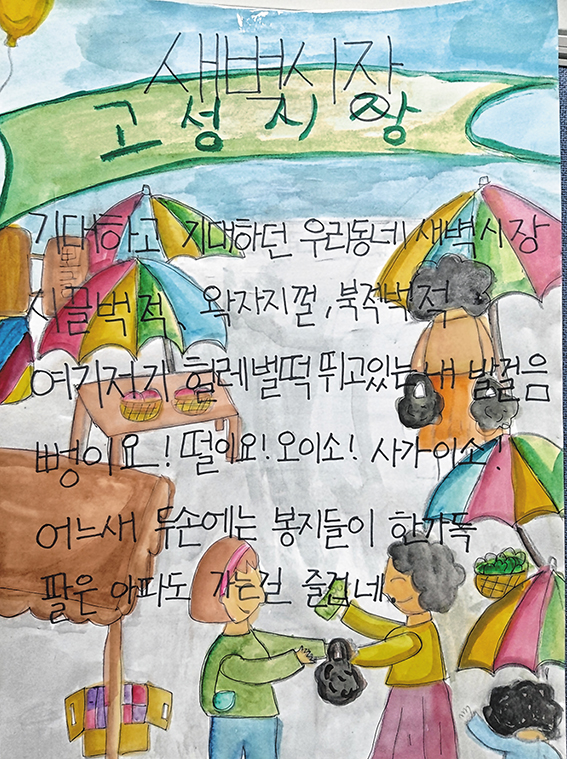 새벽시장
고성시장
기대하고 기대하던 우리동네 새벽시장
시끌벅적, 왁자지껄, 북적벅적
여기저기 헐레벌떡 뛰고있는 내 발걸음
뻥이요! 떨이요! 오이소! 사가이소!
어느새 두손에는 봉지들이 한가득
팔은 아파도 가는건 즐겁네.